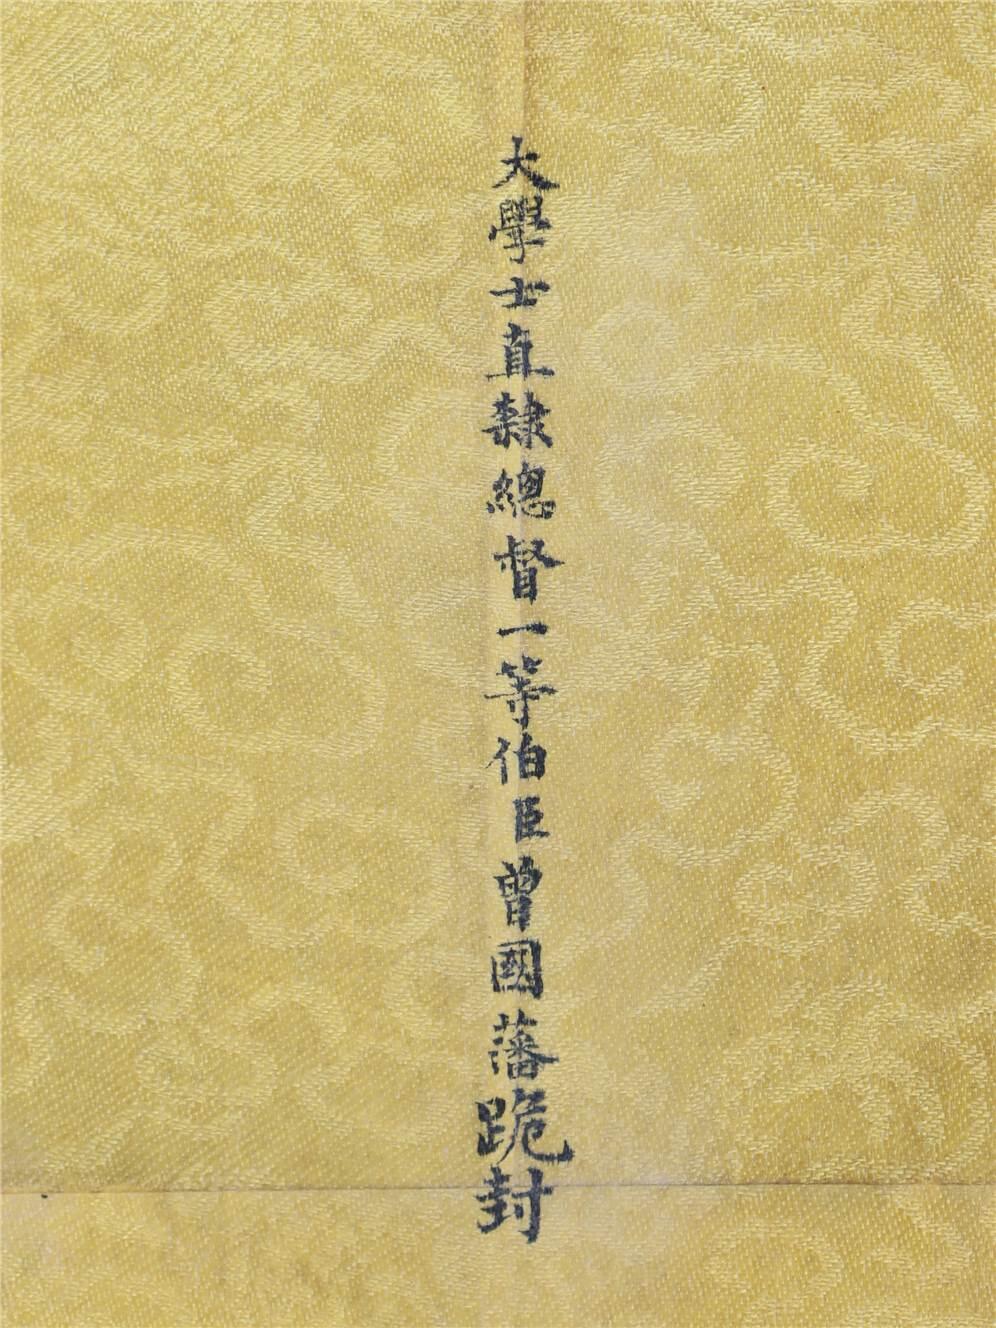 大學士直隸總督一等伯臣曾國藩跪封